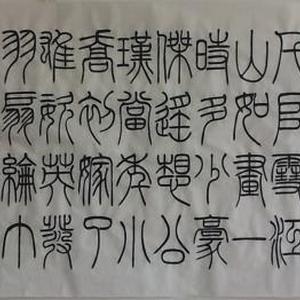 雪江
山如畫一
時多少豪
傑遙想公
瑾當年小
喬初嫁了
雄姿英發
羽扇綸巾